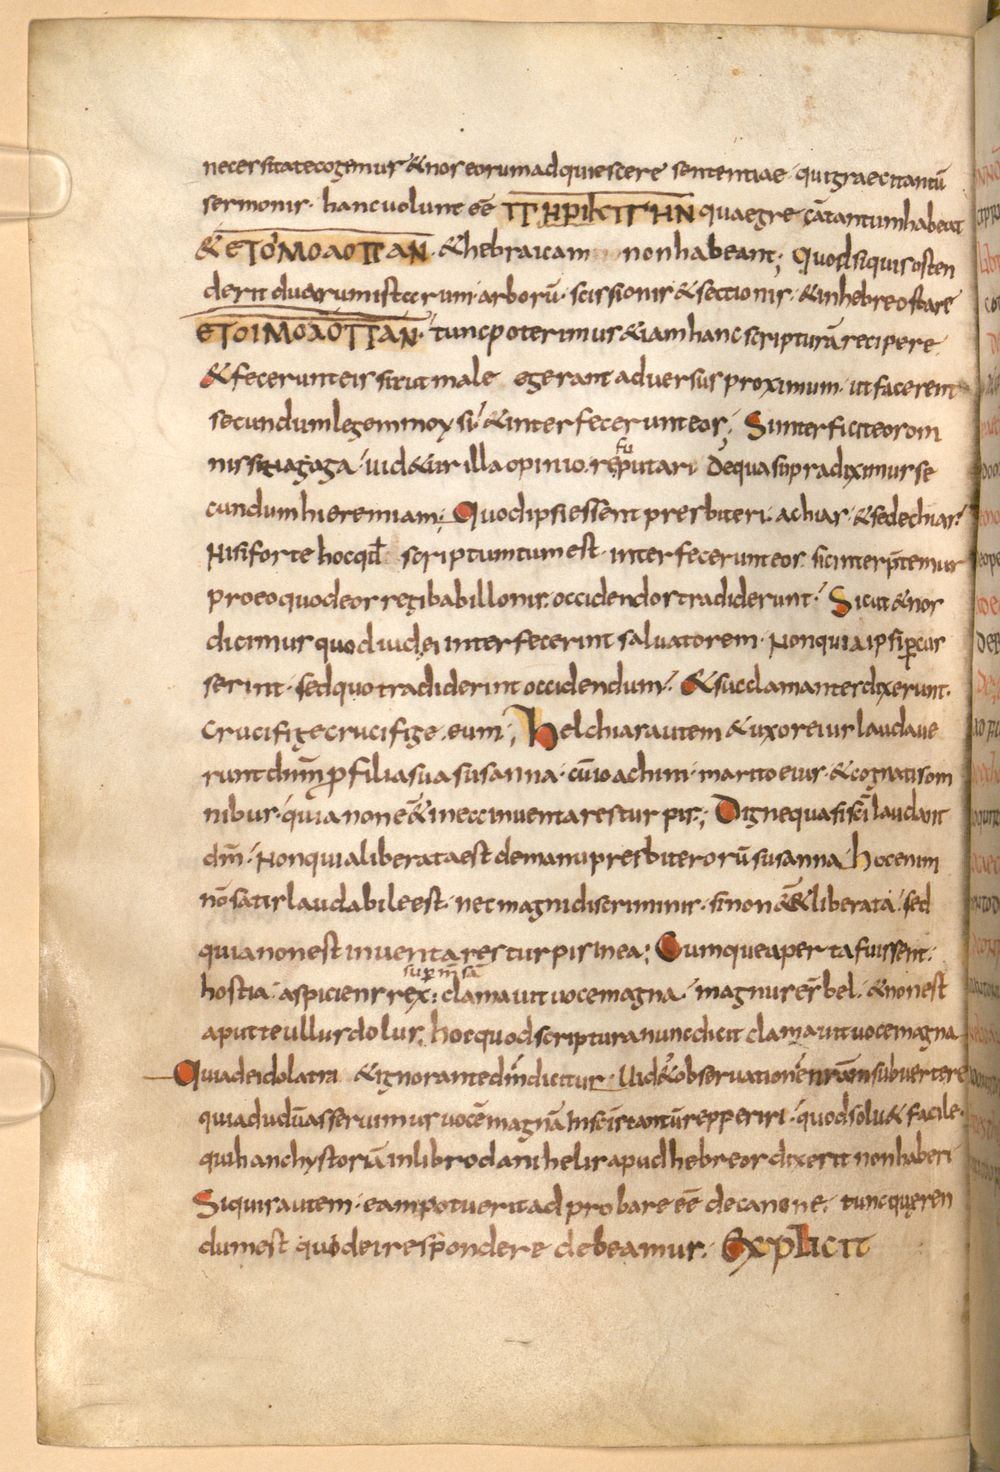 necessitate cogemur & nos eorum adquiescere sententiae · qui graeci tantū
sermonis · hanc uolunt eē ΠΕΡΙΚΟΠΗΝ quae gre cā tantum habeat
& ΕΤΟΜΟΛΟΠΑΝ · & hebraicam non habeant; Quod siquis osten
derit duarum istarum arborū · scissionis & sectionis · & in hebreo stare
ΕΤΟΙΜΟΛΟΠΑΝ · tunc poterimus & iam hanc scripturā recipere
& fecerunt eis sicut male egerant aduersus proximum · ut facerent
secundum legem moysi · & interfecerunt eos; Si interficit eos om
nis sinagoga · uid&ur illa opinio refutari de qua supra diximus se
cundum hieremiam; Quod ipsi essent presbiteri · achias · & sedechias ·
Nisi forte hoc qđ scriptum tum est · interfecerunt eos · sic interp̄temur
pro eo quod eos regi babillonis · occidendos tradiderunt · Sicut & nos
dicimus quod iudei interfecerint saluatorem · Non quia ipsi ꝑcus
serint · sed quo tradiderint occidendum · & succlamantes dixerunt ·
Crucifige crucifige · eum; helchias autem & uxor eius laudaue
runt dnm̄ ꝓ filia sua susanna · cū ioachim · marito eius · & cognatis om
nibus · quia non eē& in ea inuenta res turpis; Digne quasi sc̄i laudant
dm̄ · Non quia liberata est de manu presbiterorū susanna · hoc enim
nō satis laudabile est · nec magni discriminis · si non eē& liberata · sed
quia non est inuenta res turpis in ea; Cumque aperta fuissent ·
sup̄ m̄sā
hostia · aspiciens rex: clamauit uoce magna · magnus es bel · & non est
aput te ullus dolus; hoc quod scriptura nunc dicit clamauit uoce magna
Quia de idolatra & ignorante dm̄ dicitur · Uid& obseruationē nr̄am subuertere
quia dudū asseruimus uocē magnā in sc̄is tantū repperiri · quod solu& facile ·
qui hanc hystoriā in libro danihelis apud hebreos dixerit non haberi
Siquis autem · eam potuerit adprobare eē de canone · tunc queren
dum est quid ei respondere debeamus · Explicit